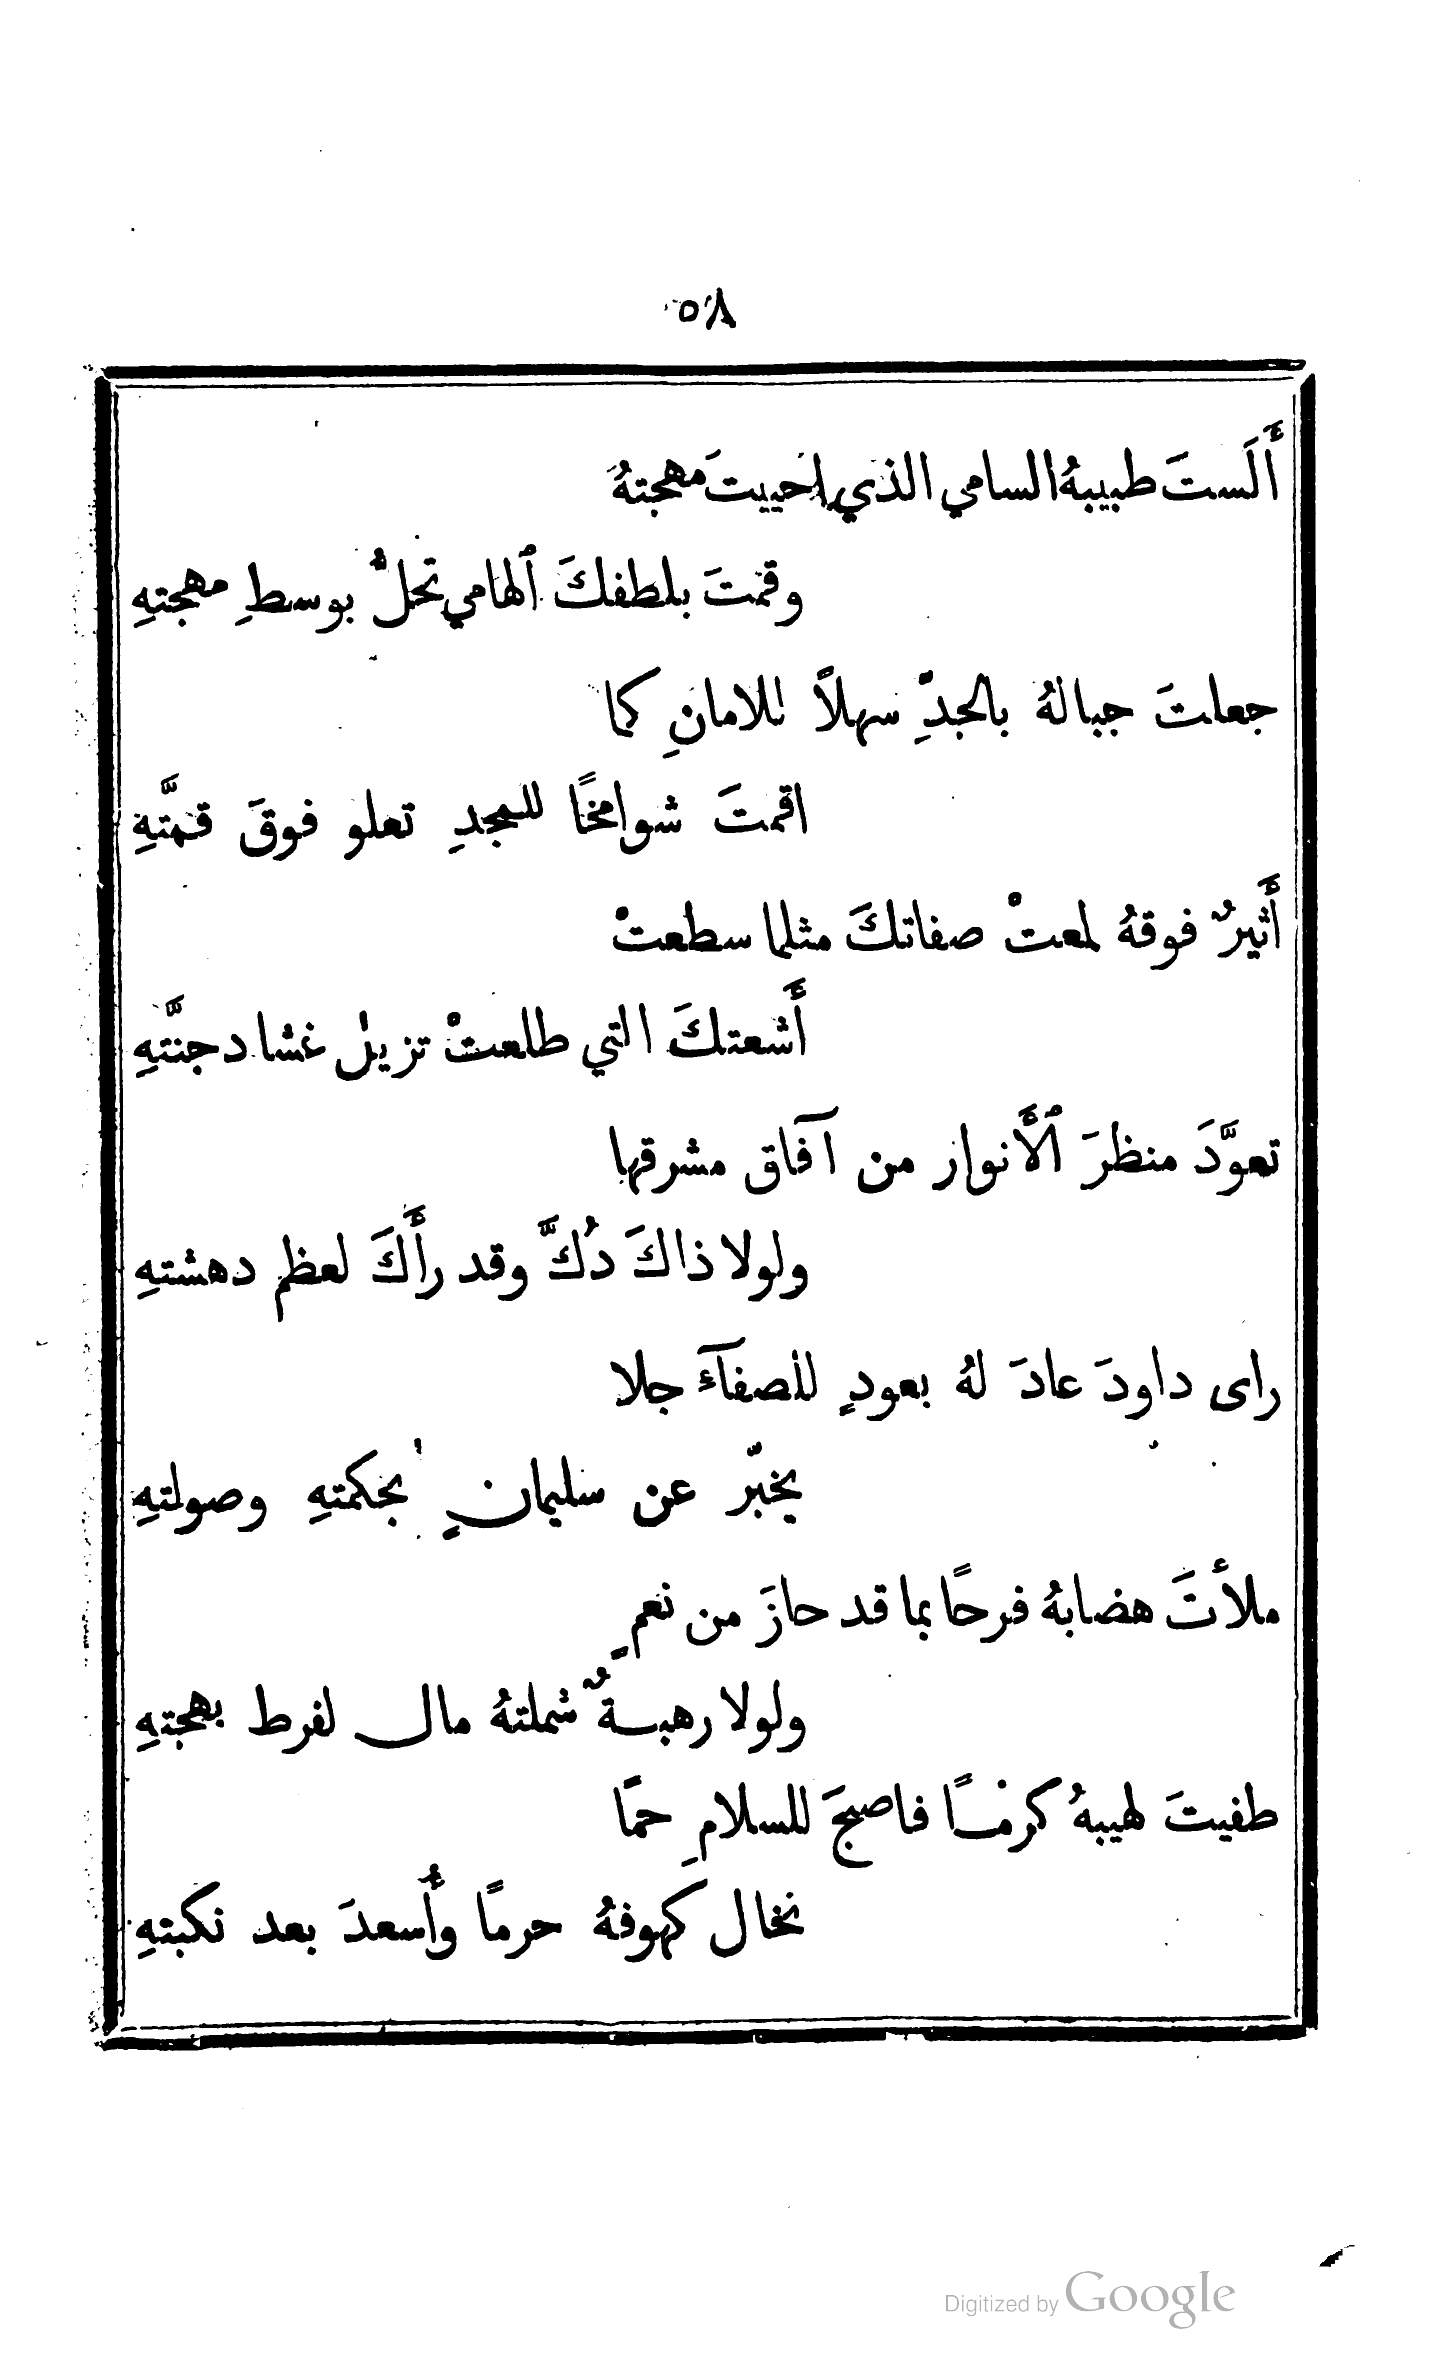 ٥٨
أَلَستَ طبيبهُ السامي الذي احييتَ مهجتهُ
وقمتَ بلطفكَ ٱلهامي تحلُّ بوسطِ مهجتهِ
جعلتَ جبالهُ بالجدِّ سهلاً للامانِ كما
اقمتَ شوامخًا للمجدِ تعلو فوقَ قمَّتهِ
أَثيرٌ فوقهُ لمعتْ صفاتكَ مثلما سطعتْ
أَشعتكَ التي طلعتْ تزيل غشا دجنَّتهِ
تعوَّدَ منظرَ ٱلأَنوار من آفاق مشرقها
ولولا ذاكَ دُكَّ وقد رأَكَ لعظم دهشتهِ
راى داودَ عادَ لهُ بعودٍ للصفآءَ جلا
يخبّر عن سليمانٍ بحكمتهِ وصولتهِ
ملأتَ هضابهُ فرحًا بما قد حازَ من نعمٍ
ولولا رهبةٌ شملتهُ مال لفرط بهجتهِ
طفيتَ لهيبهُ كرمًا فاصبحَ للسلامِ حمًا
نخال كهوفهُ حرمًا وأُسعدَ بعد نكبتهِ
Digitized by Google